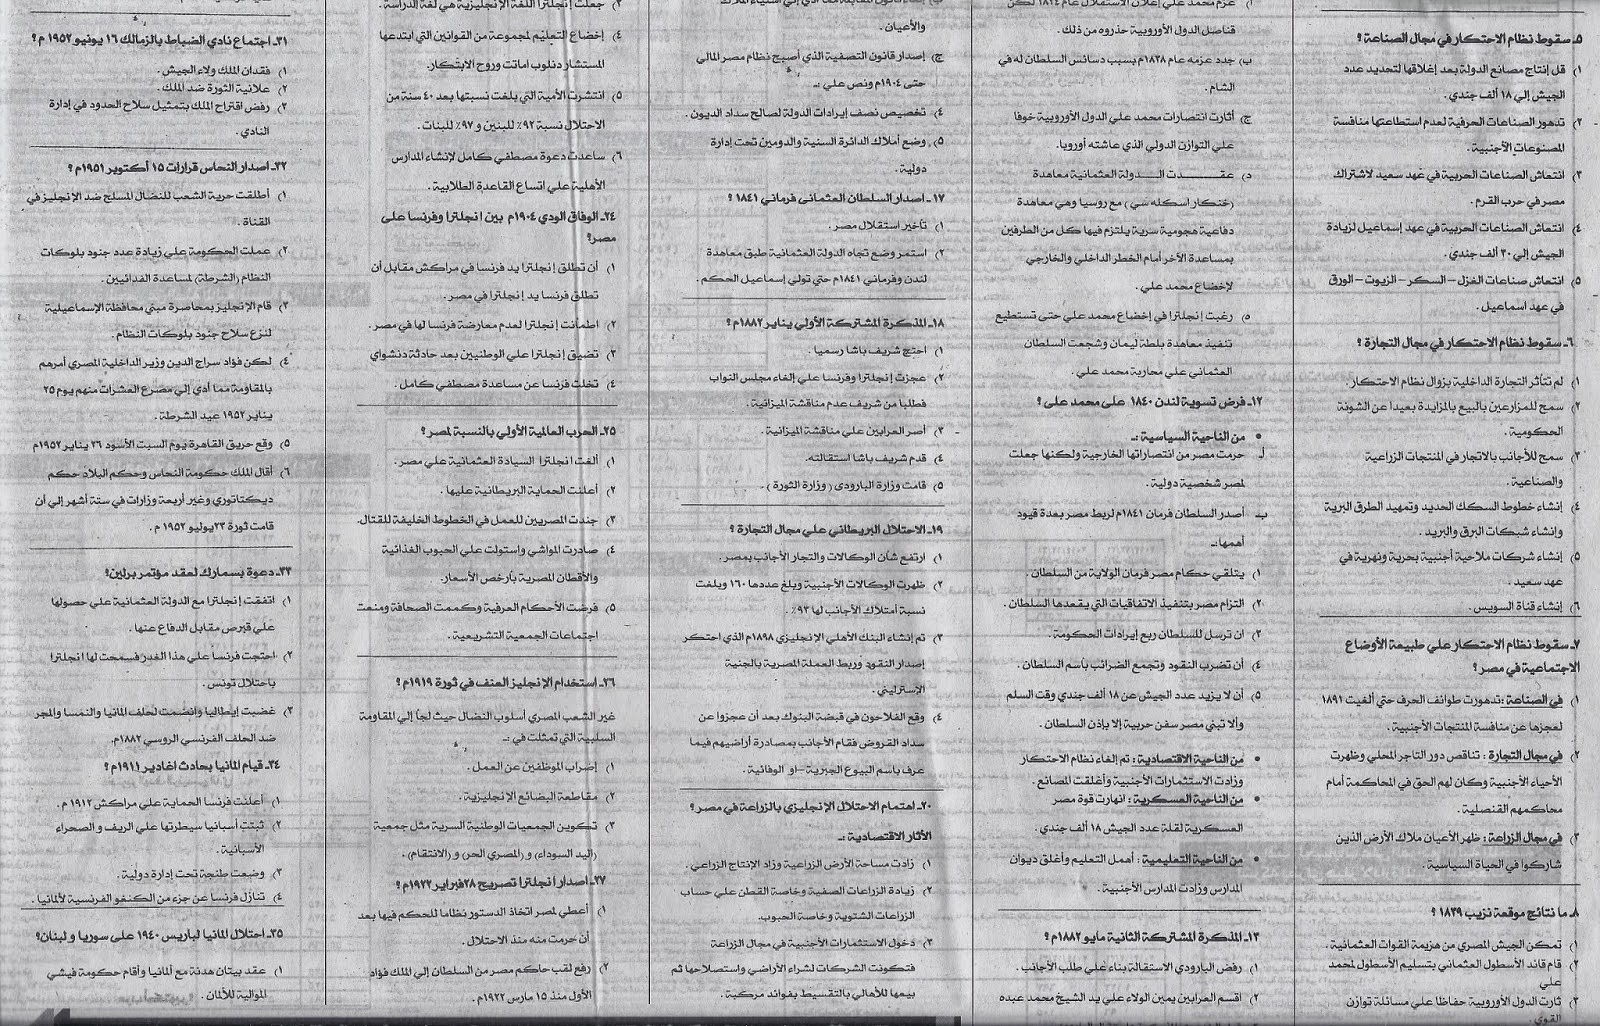 ٥ـ سقوط نظام الاحتكار في مجال الصناعة ؟
١) قل إنتاج مصانع الدولة بعد إغلاقها لتحديد عدد
الجيش إلي ١٨ ألف جندي.
٢) تدهور الصناعات الحرفية لعدم استطاعتها منافسة
المصنوعات الأجنبية.
٣) انتعاش الصناعات الحربية في عهد سعيد لاشتراك
مصر في حرب القرم .
٤) انتعاش الصناعات الحربية في عهد إسماعيل لزيادة
الجيش إلي ٣٠ ألف جندي .
٥) انتعاش صناعات الغزل – السكر – الزيوت – الورق
في عهد اسماعيل .
٦ـ سقوط نظام الاحتكار في مجال التجارة ؟
١) لم تتأثر التجارة الداخلية بزوال نظام الاحتكار .
٢) سمح للمزارعين بالبيع بالمزايدة بعيدا عن الشونة
الحكومية .
٣) سمح للأجانب بالاتجار في المنتجات الزراعية
والصناعية .
٤) إنشاء خطوط السكك الحديد وتمهيد الطرق البرية
وإنشاء شبكات البرق والبريد .
٥) إنشاء شركات ملاحية أجنبية بحرية ونهرية في
عهد سعيد .
٦) إنشاء قناة السويس .
٧ـ سقوط نظام الاحتكار علي طبيعة الأوضاع
الاجتماعية في مصر؟
١) في الصناعة : تدهورت طوائف الحرف حتي ألغيت ١٨٩١
لعجزها عن منافسة المنتجات الأجنبية .
٢) في مجال التجارة : تناقص دور التاجر المحلي وظهرت
الأحياء الأجنبية وكان لهم الحق في المحاكمة أمام
محاكمهم القنصلية .
٣) في مجال الزراعة : ظهر الأعيان ملاك الأرض الذين
شاركوا في الحياة السياسية .
٨ـ ما نتائج موقعة نزيب ١٨٣٩ ؟
١) تمكن الجيش المصري من هزيمة القوات العثمانية .
٢) قام قائد الأسطول العثماني بتسليم الأسطول لمحمد
علي
٣) ثارت الدول الأوروبية حفاظا علي مسائلة توازن
القوي .
أ) عزم محمد علي إعلان الاستقلال عام ١٨٣٤ لكن
قناصل الدول الأوروبية حذروه من ذلك .
ب) جدد عزمه عام ١٨٣٨م بسبب دسائس السلطان له في
الشام .
ج) أثارت انتصارات محمد علي الدول الأوروبية خوفا
علي التوازن الدولي الذي عاشته أوروبا.
د) عقـدت الـدولة العثمانية معاهدة
(خنكار اسكله سي ) مع روسيا وهي معاهدة
دفاعية هجومية سرية يلتزم فيها كل من الطرفين
بمساعدة الآخر أمام الخطر الداخلي والخارجي
لإخضاع محمد علي .
٥) رغبت إنجلترا في إخضاع محمد علي حتى تستطيع
تنفيذ معاهدة بلطة ليمان وشجعت السلطان
العثماني علي محاربة محمد علي .
١٢ـ فرض تسوية لندن ١٨٤٠ على محمد على ؟
• من الناحية السياسية :ـ
أـ حرمت مصر من انتصاراتها الخارجية ولكنها جعلت
لمصر شخصية دولية .
بـ أصدر السلطان فرمان ١٨٤١م لربط مصر بعدة قيود
أهمها:ـ
١) يتلقي حكام مصر فرمان الولاية من السلطان .
٢) التزام مصر بتنفيذ الاتفاقيات التي يعقدها السلطان .
٣) ان ترسل للسلطان ربع إيرادات الحكومة .
٤) أن تضرب النقود وتجمع الضرائب باسم السلطان .
٥) أن لا يزيد عدد الجيش عن ١٨ ألف جندي وقت السلم
وألا تبني مصر سفن حربية إلا بإذن السلطان .
• من الناحية الاقتصادية : تم إلغاء نظام الاحتكار
وزادت الاستثمارات الأجنبية وأغلقت المصانع .
• من الناحية العسكرية : انهارت قوة مصر
العسكرية لقلة عدد الجيش ١٨ ألف جندي .
• من الناحية التعليمية : أهمل التعليم وأغلق ديوان
المدارس وزادت المدارس الأجنبية .
١٣ـ المذكرة المشتركة الثانية مايو ١٨٨٢م؟
١) رفض البارودي الاستقالة بناء علي طلب الأجانب .
٢) اقسم العرابين يمين الولاء علي يد الشيخ محمد عبده
والأعيان.
ج) إصدار قانون التصفية الذي أصبح نظام مصر المالي
حتى ١٩٠٤م ونص علي :ـ
٤) تخصيص نصف إيرادات الدولة لصالح سداد الديون .
٥) وضع أملاك الدائرة السنية والدومين تحت إدارة
دولية .
١٧ـ اصدار السلطان العثمانى فرماني ١٨٤١ ؟
١) تأخير استقلال مصر .
٢) استمر وضع تجاه الدولة العثمانية طبق معاهدة
لندن وفرماني ١٨٤١م حتي تولي إسماعيل الحكم .
١٨ـ المذكرة المشتركة الأولي يناير ١٨٨٢م؟
١) احتج شريف باشا رسميا .
٢) عجزت إنجلترا وفرنسا علي إلغاء مجلس النواب
فطلبا من شريف عدم مناقشة الميزانية .
٣) أصر العرابين علي مناقشة الميزانية .
٤) قدم شريف باشا استقالته.
٥) قامت وزارة البارودى ( وزارة الثورة ) .
١٩ـ الاحتلال البريطاني علي مجال التجارة ؟
١) ارتفع شأن الوكالات والتجار الأجانب بمصر .
٢) ظهرت الوكالات الأجنبية وبلغ عددها ١٦٠ وبلغت
نسبة أمتلاك الأجانب لها ٩٣٪ .
٣) تم إنشاء البنك الأهلي الإنجليزي ١٨٩٨م الذي احتكر
إصدار النقود وربط العملة المصرية بالجنية
الإسترليني .
٤) وقع الفلاحون في قبضة البنوك بعد أن عجزوا عن
سداد القروض فقام الأجانب بمصادرة أراضيهم فيما
عرف باسم البيوع الجبرية – او الوفائية .
٢٠ـ اهتمام الاحتلال الإنجليزي بالزراعة في مصر؟
الآثار الاقتصادية :ـ
١) زادت مساحة الأرض الزراعية وزاد الإنتاج الزراعي .
٢) زيادة الزراعات الصفية وخاصة القطن علي حساب
الزراعات الشتوية وخاصة الحبوب.
٣) دخول الاستثمارات الأجنبية في مجال الزراعة
فتكونت الشركات لشراء الأراضي واستصلاحها ثم
بيعها للأهالي بالتقسيط بفوائد مركبة .
٣) جعلت إنجلترا اللغة الإنجليزية هي لغة الدراسة .
٤) إخضاع التعليم لمجموعة من القوانين التي ابتدعها
المستشار دنلوب اماتت وروح الابتكار.
٥) انتشرت الأمية التي بلغت نسبتها بعد ٤٠ سنة من
الاحتلال نسبة ٩٢٪ للبنين و ٩٧٪ للبنات .
٦) ساعدت دعوة مصطفي كامل لإنشاء المدارس
الأهلية علي اتساع القاعدة الطلابية .
٢٤ـ الوفاق الودي ١٩٠٤م بين إنجلترا وفرنسا على
مصر؟
١) أن تطلق إنجلترا يد فرنسا في مراكش مقابل أن
تطلق فرنسا يد إنجلترا في مصر .
٢) اطمأنت إنجلترا لعدم معارضة فرنسا لها في مصر .
٣) تضيق إنجلترا علي الوطنيين بعد حادثة دنشواي
٤) تخلت فرنسا عن مساعدة مصطفي كامل .
٢٥ـ الحرب العالمية الأولي بالنسبة لمصر ؟
١) ألغت انجلترا السيادة العثمانية علي مصر .
٢) أعلنت الحماية البريطانية عليها .
٣) جندت المصريين للعمل في الخطوط الخليفة للقتال.
٤) صادرت المواشي واستولت علي الحبوب الغذائية
والأقطان المصرية بأرخص الأسعار.
٥) فرضت الأحكام العرفية وكممت الصحافة ومنعت
اجتماعات الجمعية التشريعية .
٢٦ـ استخدام الإنجليز العنف في ثورة ١٩١٩م؟
غير الشعب المصري أسلوب النضال حيث لجأ إلي المقاومة
السلبية التي تمثلت في :ـ
١) إضراب الموظفين عن العمل .
٢) مقاطعة البضائع الإنجليزية .
٣) تكوين الجمعيات الوطنية السرية مثل جمعية
(اليد السوداء) و (المصري الحر) و (الانتقام).
٢٧ـ اصدار انجلترا تصريح ٢٨ فبراير ١٩٢٢م؟
١) أعطي لمصر اتخاذ الدستور نظاما للحكم فيها بعد
أن حرمت منه منذ الاحتلال .
٢) رفع لقب حاكم مصر من السلطان إلي الملك فؤاد
الأول منذ ١٥ مارس ١٩٢٢م.
٣١ـ اجتماع نادي الضباط بالزمالك ١٦ يونيو ١٩٥٢ م ؟
١) فقدان الملك ولاء الجيش .
٢) علانية الثورة ضد الملك .
٣) رفض اقتراح الملك بتمثيل سلاح الحدود في إدارة
النادي .
٣٢ـ اصدار النحاس قرارات ١٥ أكتوبر ١٩٥١م ؟
١) أطلقت حرية الشعب للنضال المسلح ضد الإنجليز في
القناة .
٢) عملت الحكومة علي زيادة عدد جنود بلوكات
النظام (الشرطة) لمساعدة الفدائيين .
٣) قام الإنجليز بمحاصرة مبني محافظة الإسماعيلية
لنزع سلاح جنود بلوكات النظام .
٤) لكن فؤاد سراج الدين وزير الداخلية المصري أمرهم
بالمقاومة مما أدي إلي مصرع العشرات منهم يوم ٢٥
يناير ١٩٥٢ عيد الشرطة .
٥) وقع حريق القاهرة يوم السبت الأسود ٢٦ يناير ١٩٥٢م
٦) أقال الملك حكومة النحاس وحكم البلاد حكم
ديكتاتوري وغير أربعة وزارات في ستة أشهر إلي أن
قامت ثورة ٢٣ يوليو ١٩٥٢ م .
٣٣ـ دعوة بسمارك لعقد مؤتمر برلين؟
١) اتفقت إنجلترا مع الدولة العثمانية علي حصولها
علي قبرص مقابل الدفاع عنها .
٢) احتجت فرنسا علي هذا الغدر فسمحت لها انجلترا
باحتلال تونس .
٣) غضبت إيطاليا وانضمت لحلف المانيا والنمسا والمجر
ضد الحلف الفرنسي الروسي ١٨٨٢م.
٣٤ـ قيام المانيا بحادث اغادير ١٩١١م ؟
١) أعلنت فرنسا الحماية علي مراكش ١٩١٢ م .
٢) ثبتت أسبانيا سيطرتها علي الريف و الصحراء
الأسبانية .
٣) وضعت طنجة تحت إدارة دولية .
٤) تنازل فرنسا عن جزء من الكنغو الفرنسية لألمانيا .
٣٥ـ احتلال المانيا لباريس ١٩٤٠ على سوريا و لبنان؟
١) عقد بيتان هدنة مع ألمانيا وأقام حكومة فيشي
الموالية للألمان .